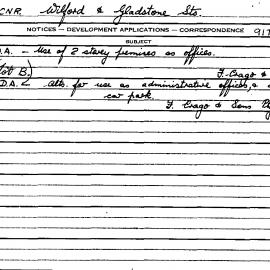 CNR. Wilford & Gladstone Sts.
NOTICES — DEVELOPMENT APPLICATIONS — CORRESPONDENCE 917
SUBJECT
D.A. - Use of 2 storey premises as offices.
F. Crago &
Lot B.)
D.A. Alts. for use as administrative offices, &
car park.
F. Crago & Sons P